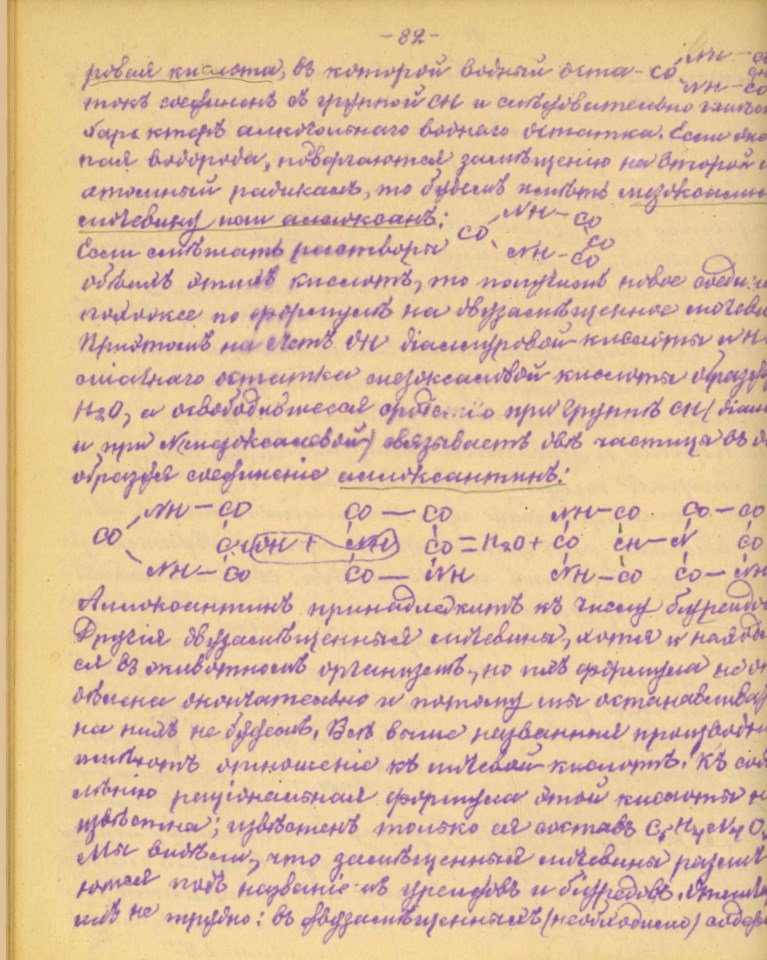 -82-
ровая кислота, въ которой водный оста- CO NH - CO
токъ соединенъ съ группой CH и слѣдовательно
характеръ алкогольнаго воднаго остатка. Если
пая водорода, подвергаются замѣщенію на второй
атомный радикалъ, то будемъ имѣть
мочевину или аллоксанъ: CO NH - CO CO NH - CO
Если смѣшать растворы
обѣихъ этихъ кислотъ, то получимъ новое
похожее по формулѣ на двузамѣщенное
Притомъ на счетъ OH діалуровой кислоты и H
остатка мезоксалевой кислоты
H₂O, а освободившееся сродство при группѣ CH (
и при N мезоксалевой) связываетъ двѣ частицы въ
образуя соединеніе аллоксантинъ:
CO NH - CO CH OH + NH - CO CO - CO CO = H₂O + NH - CO CO CH - N CO - CO CO
NH - CO CO - NH NH - CO CO - NH
Аллоксантинъ принадлежитъ къ числу
Другія двузамѣщенныя мочевины, хотя и
ся въ животномъ организмѣ, но ихъ формула не
окончательно и потому мы останавливаться
на нихъ не будемъ. Всѣ выше названныя
имѣютъ отношеніе къ мочевой кислотѣ. Къ
лѣнію раціональная формула этой кислоты
извѣстна; извѣстенъ только ея составъ C₅H₄N₄O
Мы видѣли, что замѣщенныя мочевины
ются подъ названіемъ уреидовъ и біуредовъ.
ихъ не трудно: въ двузамѣщенныхъ (необходимо)